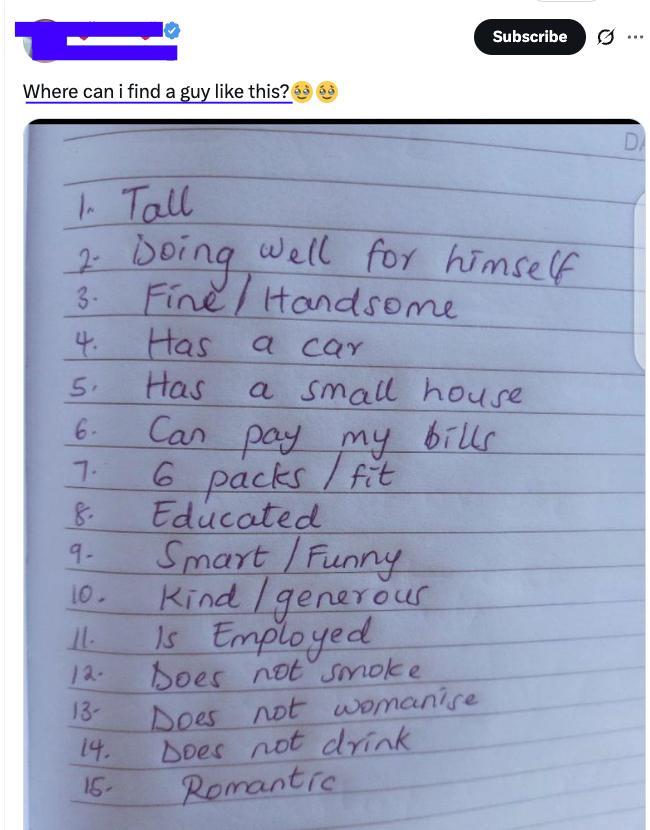 Subscribe
Where can i find a guy like this?🥹🥹
DA
1. Tall
2- Doing well for himself
3. Fine / Handsome
4. Has a car
5. Has a small house
6. Can pay my bills
7. 6 packs / fit
8. Educated
9- Smart / Funny
10. Kind / generous
11. Is Employed
12- Does not smoke
13- Does not womanise
14. Does not drink
15- Romantic